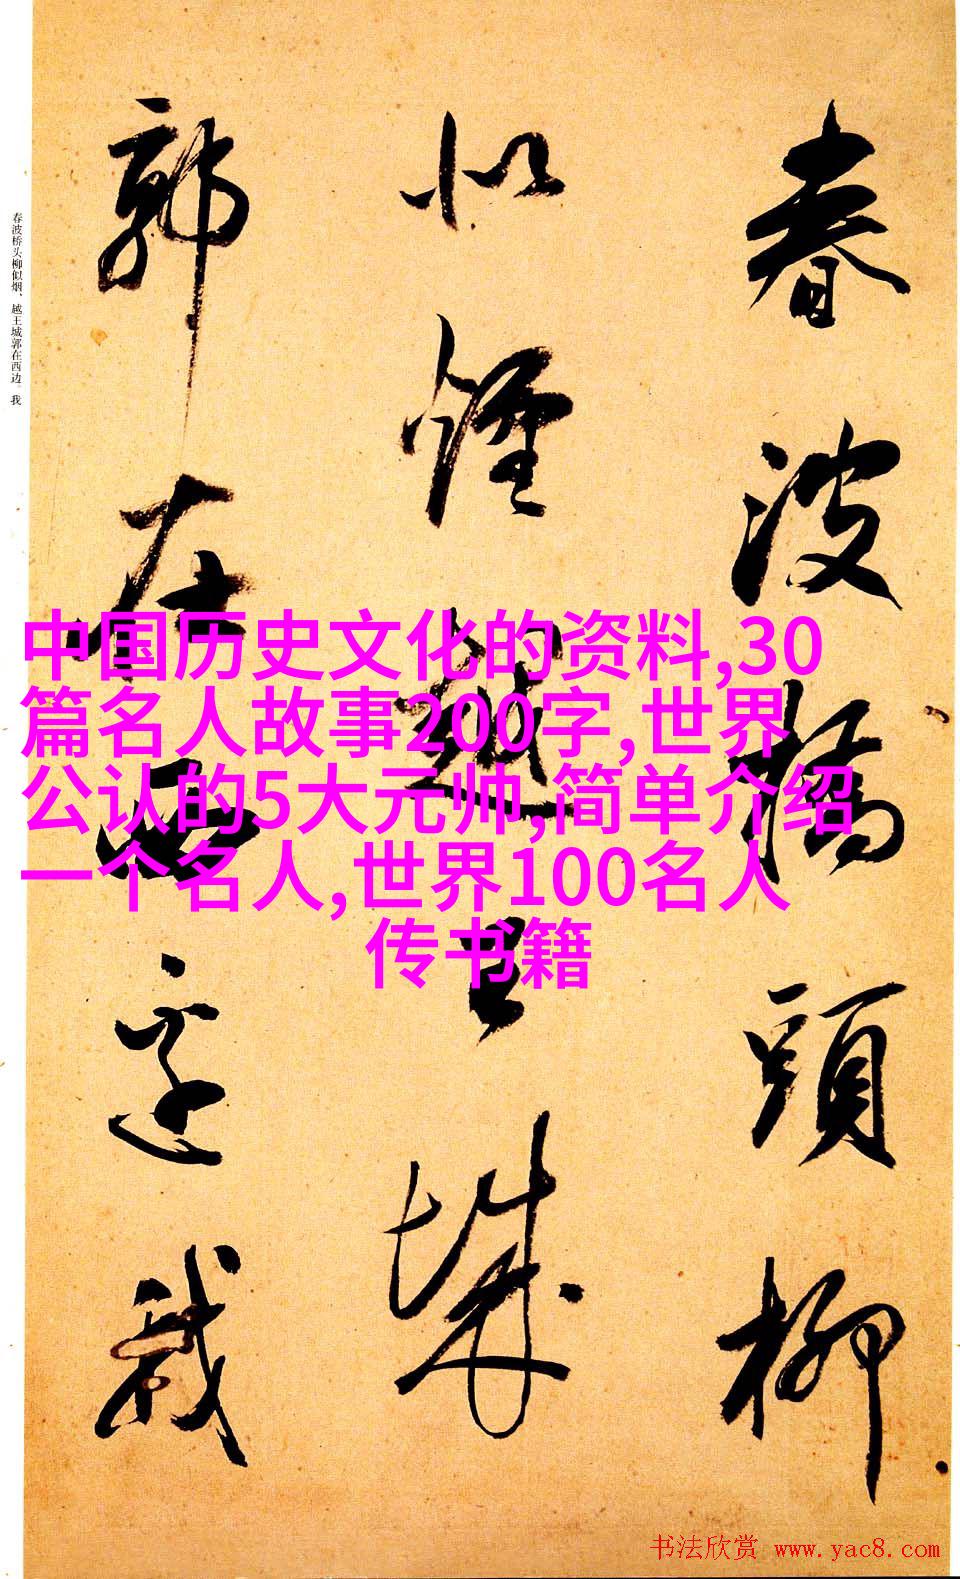 春波橋頭柳
似煙越王城
郭在西邊我
春波桥头柳似烟、越王城郭在西边。我
中国历史文化的资料,30
篇名人故事200字,世界
公认的5大元帅,简单介绍
一个名人,世界100名人
传书籍
书法欣赏 www.yac8.com